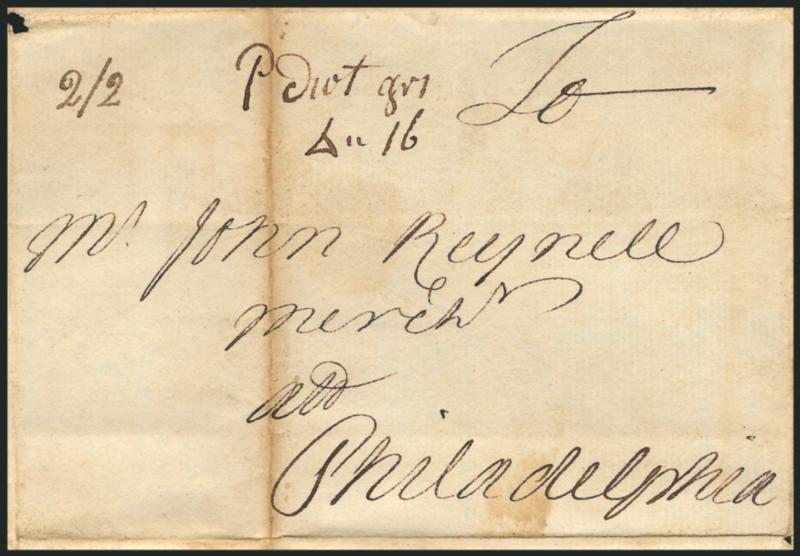 2/2 P dwt grs To
4 " 16
Mr. John Reynell
merch't
att
Philadelphia